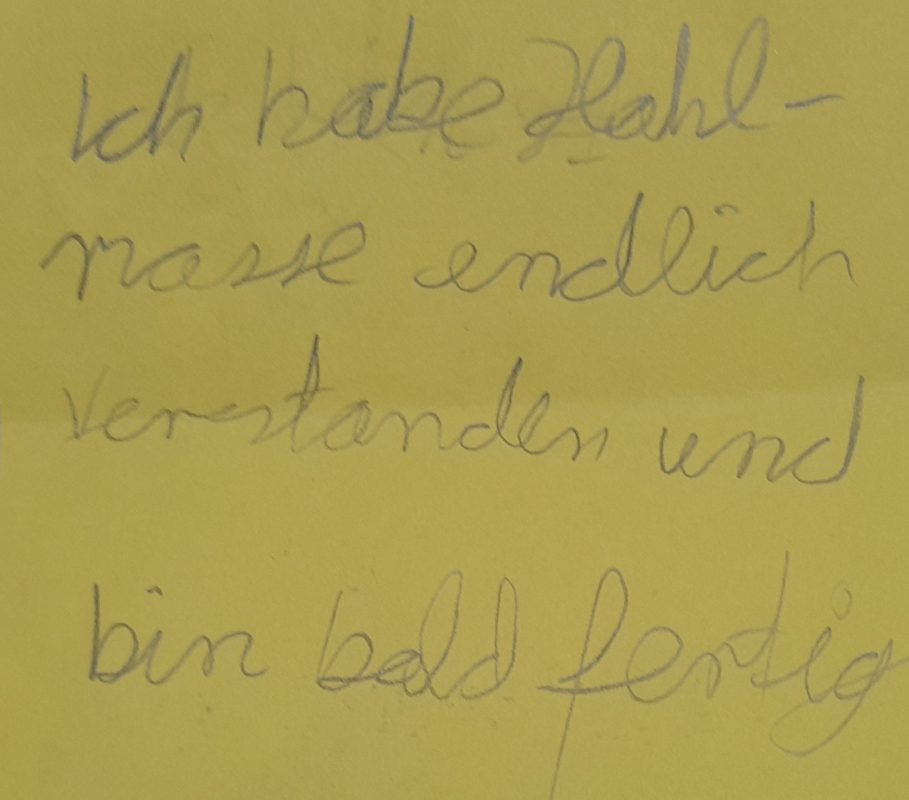 Ich habe Hohl-
masse endlich
verstanden und
bin bald fertig